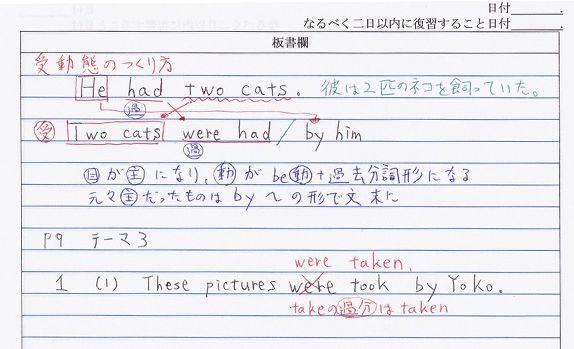 日付__________.
なるべく二日以内に復習すること日付__________.
板書欄
受動態のつくり方
He had two cats. 彼は2匹のネコを飼っていた。
過
受 Two cats were had / by him
過
目が主になり、動がbe動+過去分詞形になる
元々主だったものはby〜の形で文末に
P9 テーマ3
were taken.
1 (1) These pictures were took by Yoko.
takeの過分はtaken